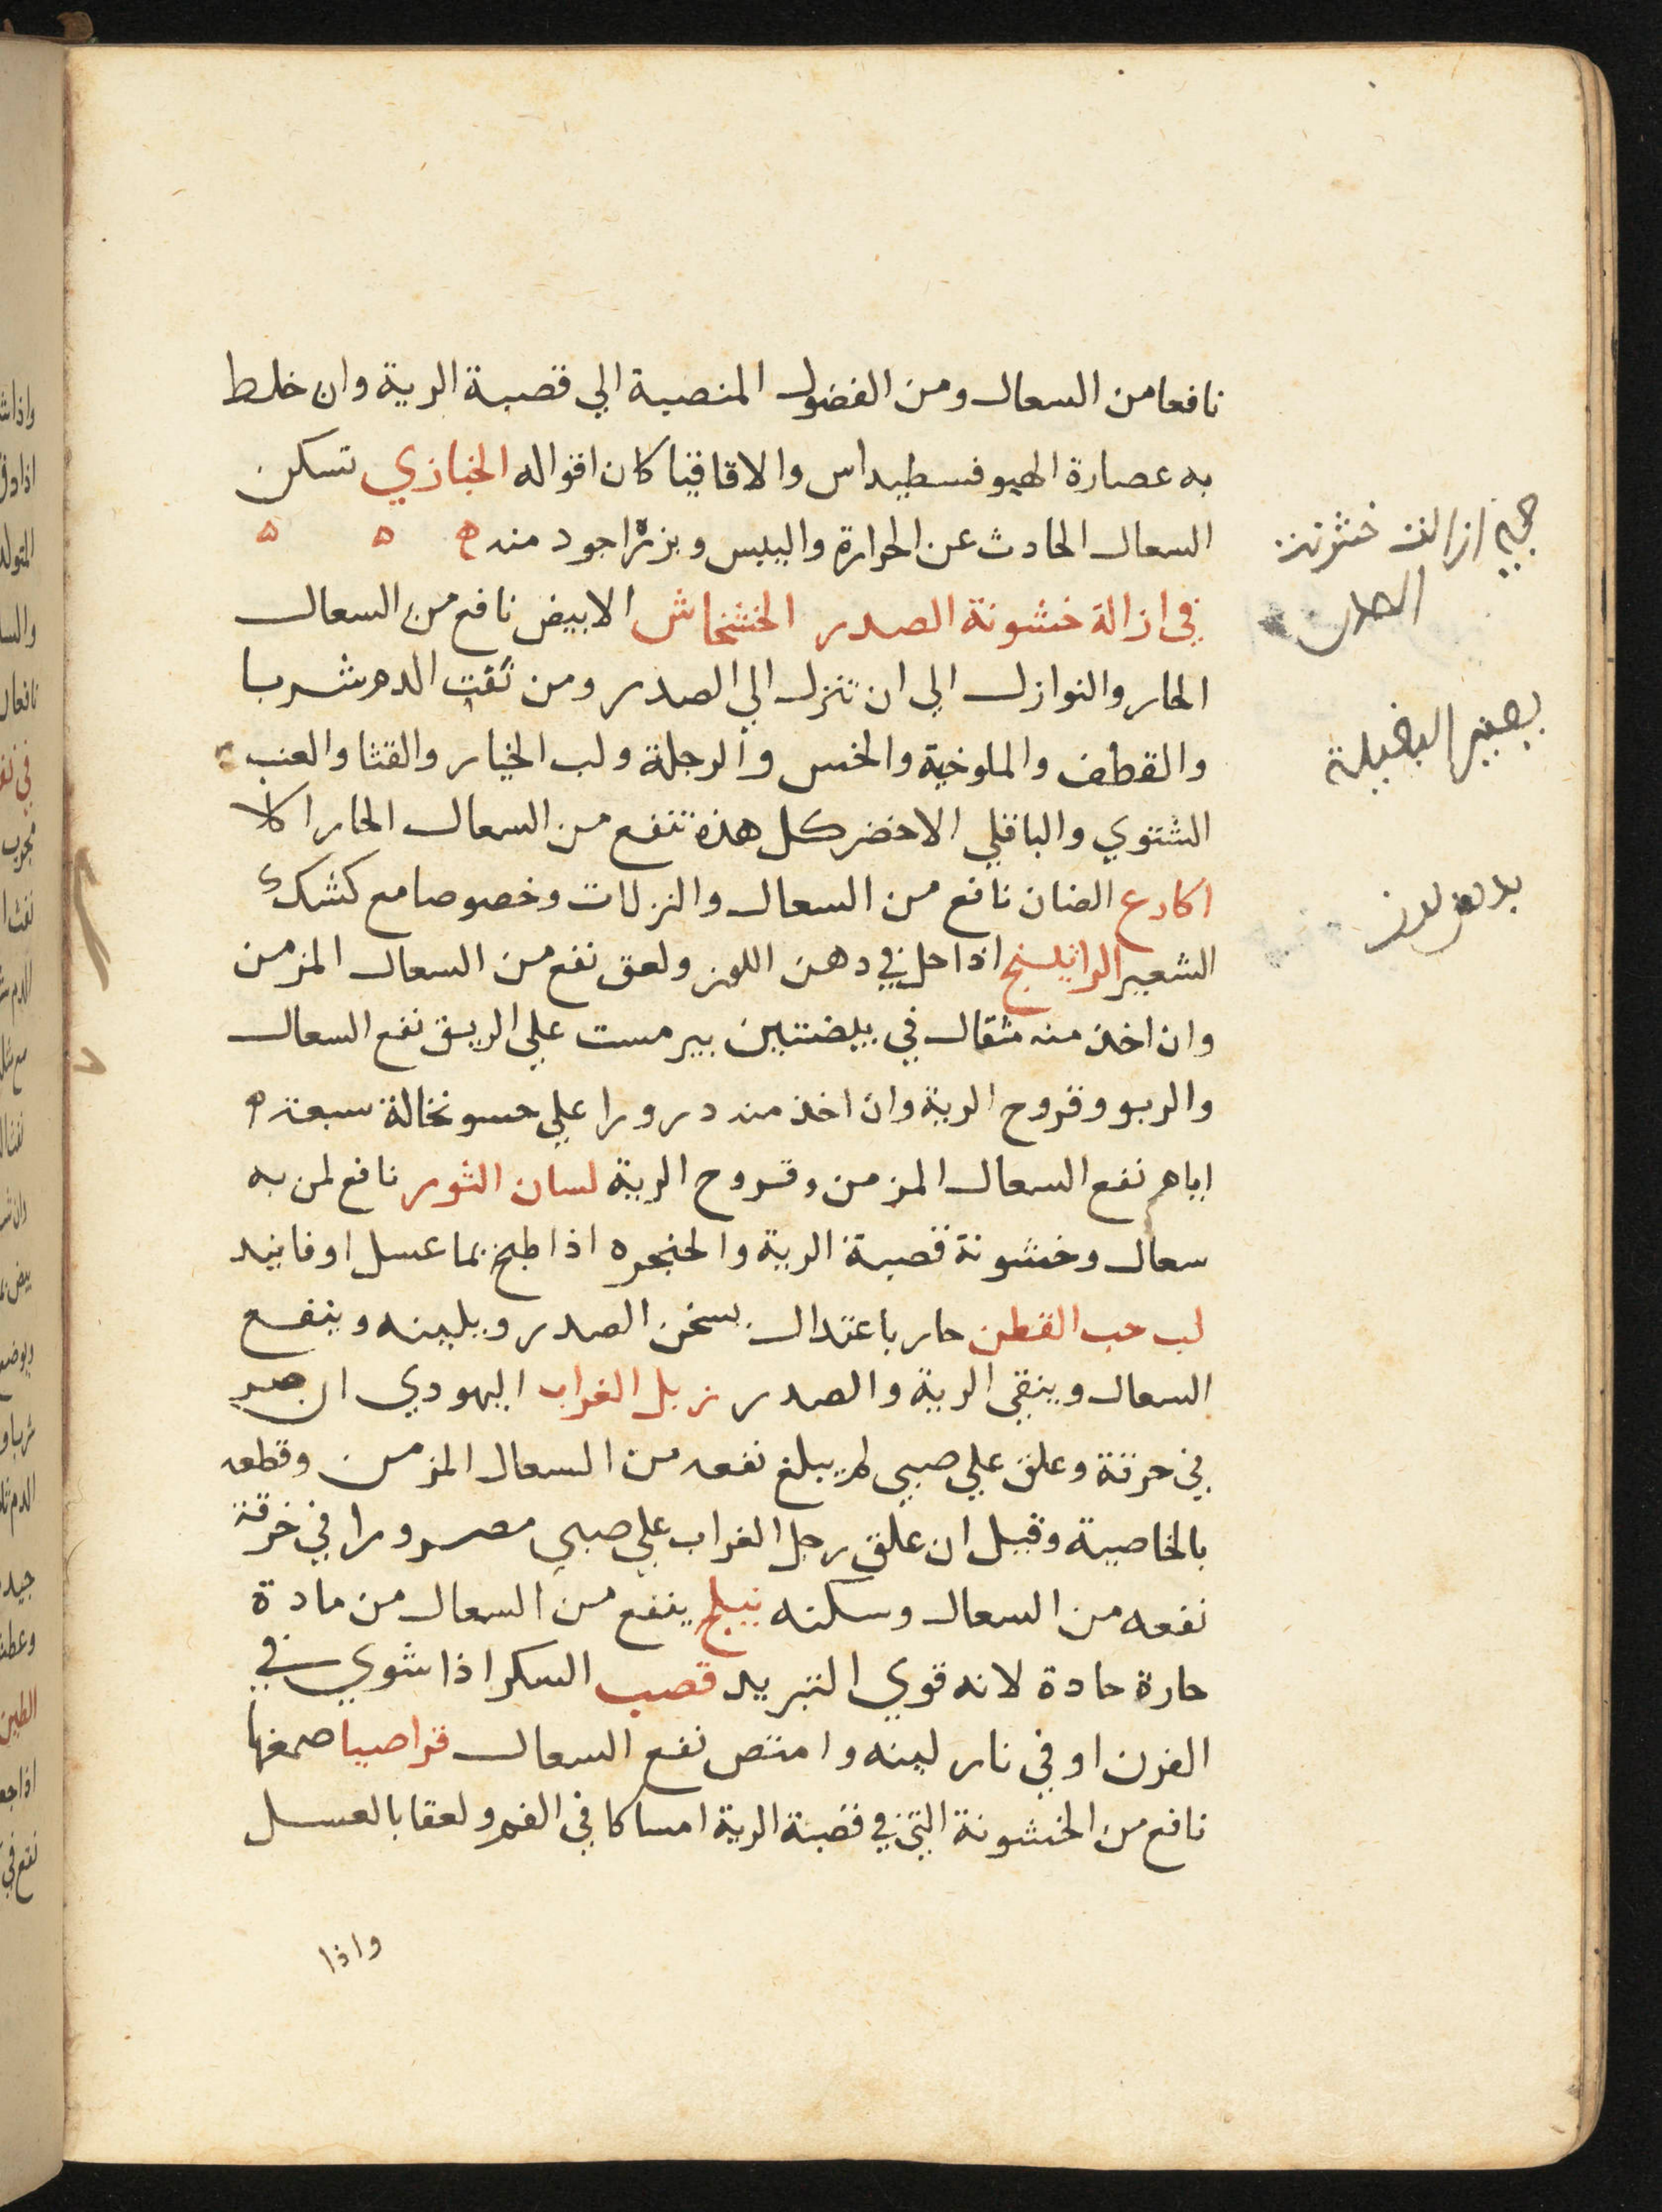 نافعا من السعال ومن الفضول المنصبة الي قصبة الرية وان خلط
به عصارة الهيوفسطيداس والاقاقيا كان اقوا له الخبازي تسكن
السعال الحادث عن الحرارة واليبس وبزره اجود منه
في ازالة خشونة الصدر الخشخاش الابيض نافع من السعال
الحار والنوازل الي ان تنزل الي الصدر ومن نفث الدم شربا
والقطف والملوخية والخس والرجلة ولب الخيار والقثا والعنب
الشتوي والباقلي الاخضر كل هذه تنفع من السعال الحار اكلا
اكارع الضان نافع من السعال والنزلات وخصوصا مع كشك
الشعير الراتينج اذا حل في دهن اللوز ولعق نفع من السعال المزمن
وان اخذ منه مثقال في بيضتين بيرمست علي الريق نفع السعال
والربو وقروح الرية وان اخذ منه درورا علي حسو نخالة سبعة
ايام نفع السعال المزمن وقروح الرية لسان الثور نافع لمن به
سعال وخشونة قصبة الرية والحنجره اذا طبخ بما عسل او فانيد
لب حب القطن حار باعتدال يسخن الصدر ويلينه وينفع
السعال وينقي الرية والصدر زبل الغراب اليهودي ان صر
في خرقة وعلق علي صبي لم يبلغ نفعه من السعال المزمن وقطعه
بالخاصية وقيل ان علق رجل الغراب علي صبي مصرورا في خرقة
نفعه من السعال وسكنه ينفع من السعال من مادة
حارة حادة لانه قوي التبريد قصب السكر اذا شوي في
الفرن او في نار لينه وامتص نفع السعال قراصيا صمغها
نافع من الخشونة التي في قصبة الرية امساكا في الفم ولعقا بالعسل
واذا